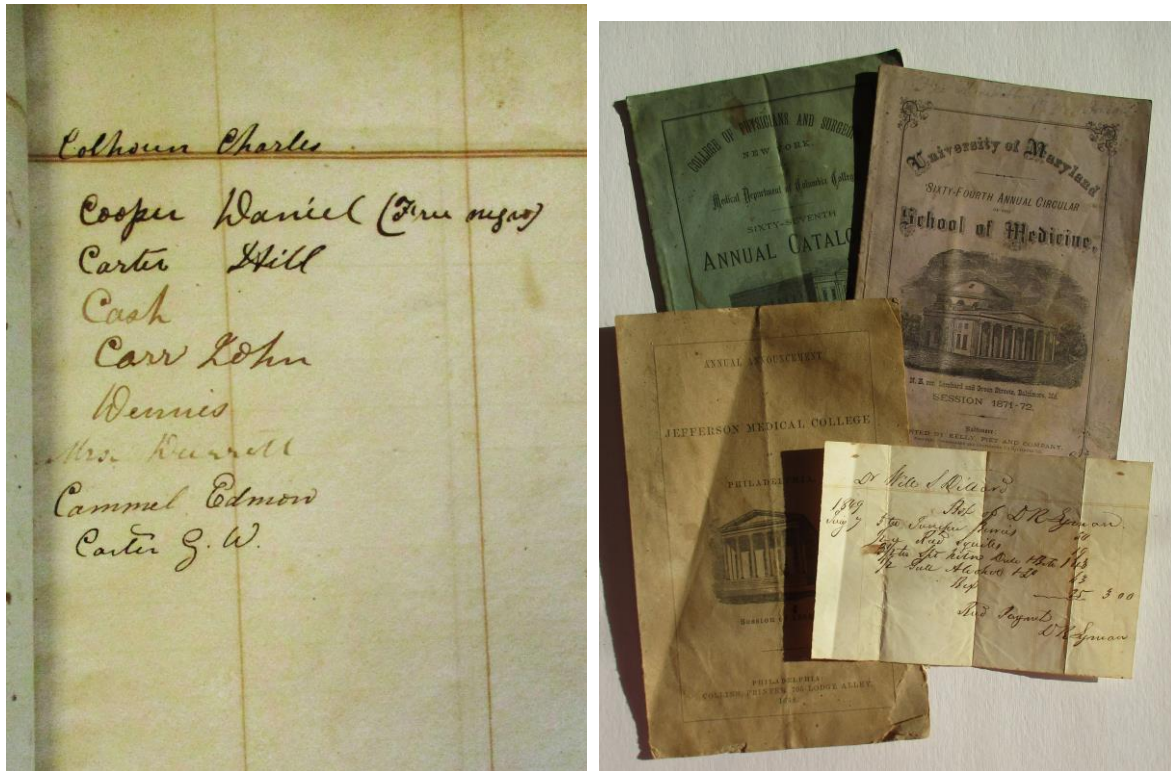 Colhoun Charles
Cooper Daniel (Free negro)
Carter Hill
Cash
Carr John
Dennis
Mrs. Durrett
Cammel Edmon
Carter G. W.
COLLEGE OF PHYSICIANS AND SURGEO
NEW YORK
Medical Department of Columbia College
SIXTY-SEVENTH
ANNUAL CATALO
University of Maryland
SIXTY-FOURTH ANNUAL CIRCULAR
OF THE
School of Medicine,
N. E. cor. Lombard and Green Streets, Baltimore, Md.
SESSION 1871-72.
Baltimore:
PRINTED BY KELLY, PIET AND COMPANY.
ANNUAL ANNOUNCEMENT
JEFFERSON MEDICAL COLLEGE
PHILADELPHIA
Session of
PHILADELPHIA
COLLINS, PRINTER, LODGE ALLEY.
Dr Wile S Dillard
1869 Bot of D R Lyman
7 Juniper Berries 50
Red
1.43
1/2 Alcohol 63
Box 25 3 00
Recd Paymt
D R Lyman